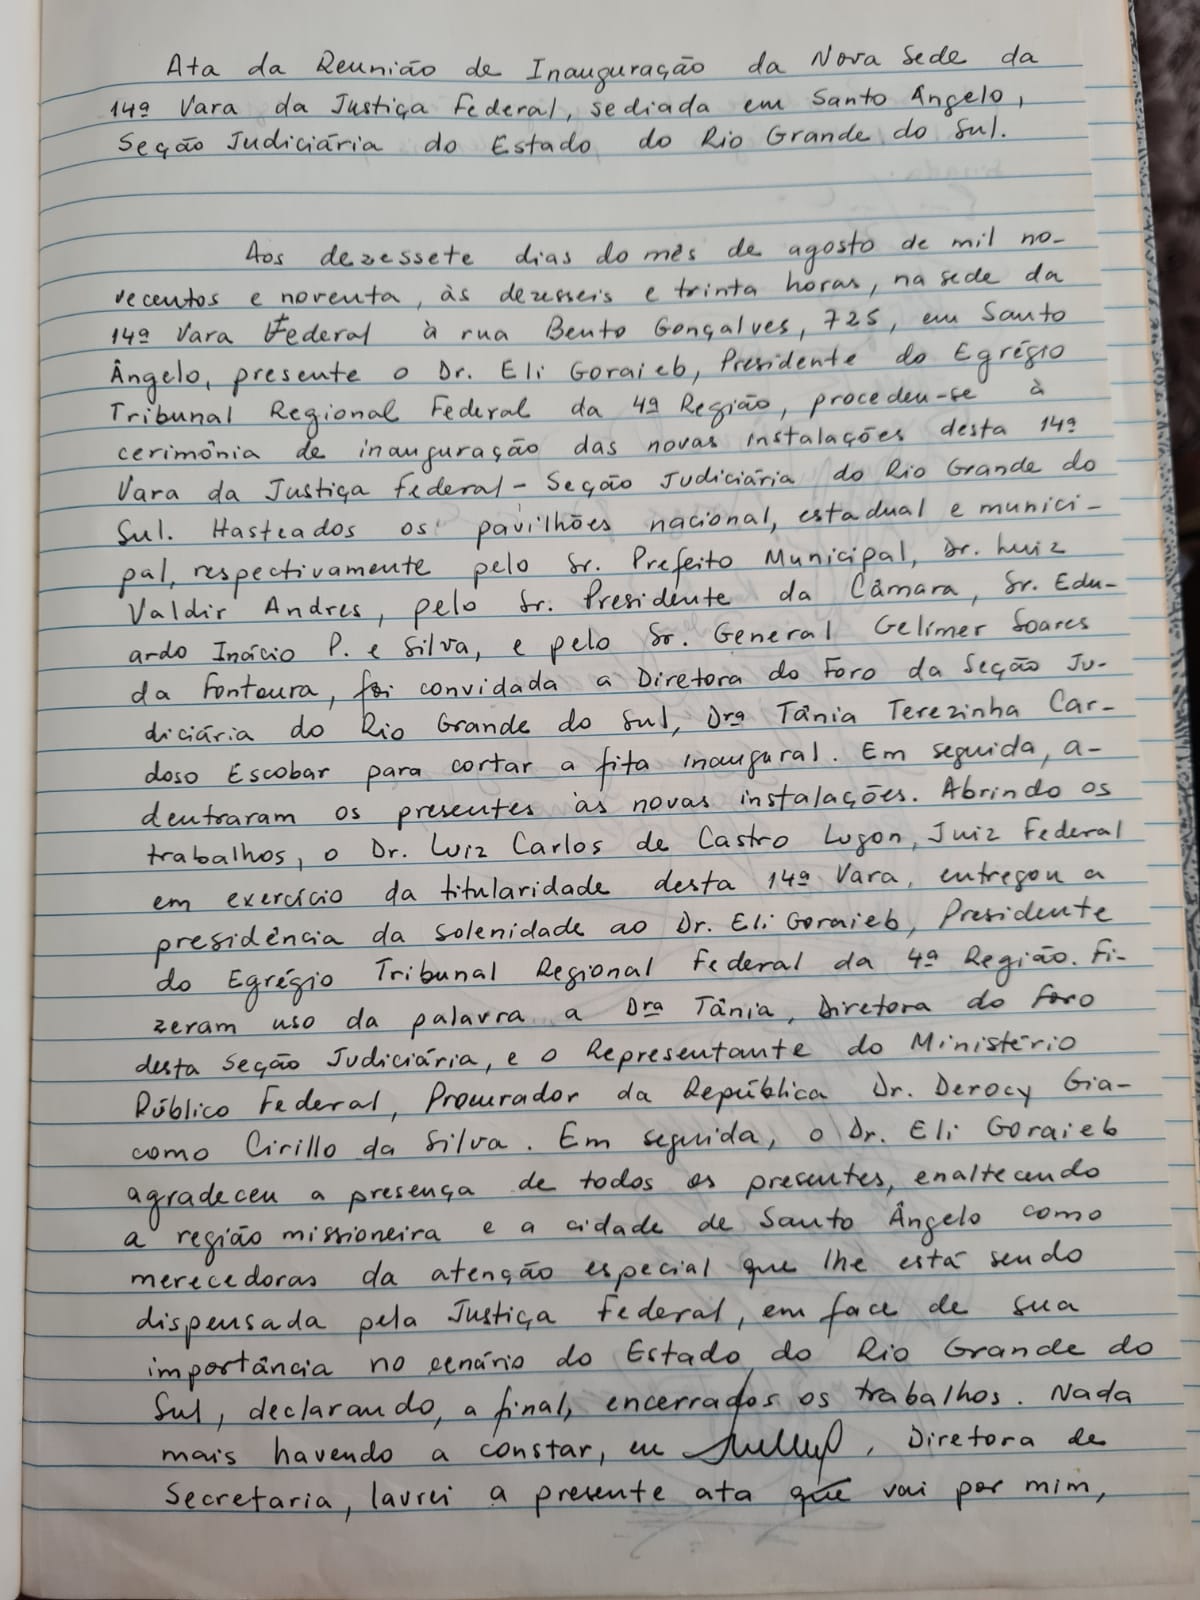 Ata da Reunião de Inauguração da Nova Sede da
14ª Vara da Justiça Federal, sediada em Santo Ângelo,
Seção Judiciária do Estado do Rio Grande do Sul.
Aos dezessete dias do mês de agosto de mil no-
vecentos e noventa, às dezesseis e trinta horas, na sede da
14ª Vara Federal à rua Bento Gonçalves, 725, em Santo
Ângelo, presente o Dr. Eli Goraieb, Presidente do Egrégio
Tribunal Regional Federal da 4ª Região, procedeu-se à
cerimônia de inauguração das novas instalações desta 14ª
Vara da Justiça Federal - Seção Judiciária do Rio Grande do
Sul. Hasteados os pavilhões nacional, estadual e munici-
pal, respectivamente pelo Sr. Prefeito Municipal, Dr. Luiz
Valdir Andres, pelo Sr. Presidente da Câmara, Sr. Edu-
ardo Inácio P. e Silva, e pelo Sr. General Gelimer Soares
da Fontoura, foi convidada a Diretora do Foro da Seção Ju-
diciária do Rio Grande do Sul, Drª Tânia Terezinha Car-
doso Escobar para cortar a fita inaugural. Em seguida, a-
dentraram os presentes às novas instalações. Abrindo os
trabalhos, o Dr. Luiz Carlos de Castro Lugon, Juiz Federal
em exercício da titularidade desta 14ª Vara, entregou a
presidência da solenidade ao Dr. Eli Goraieb, Presidente
do Egrégio Tribunal Regional Federal da 4ª Região. Fi-
zeram uso da palavra a Drª Tânia, Diretora do Foro
desta Seção Judiciária, e o Representante do Ministério
Público Federal, Procurador da República Dr. Derocy Gia-
como Cirillo da Silva. Em seguida, o Dr. Eli Goraieb
agradeceu a presença de todos os presentes, enaltecendo
a região missioneira e a cidade de Santo Ângelo como
merecedoras da atenção especial que lhe está sendo
dispensada pela Justiça Federal, em face de sua
importância no cenário do Estado do Rio Grande do
Sul, declarando, a final, encerrados os trabalhos. Nada
mais havendo a constar, eu , Diretora de
Secretaria, lavrei a presente ata que vai por mim,